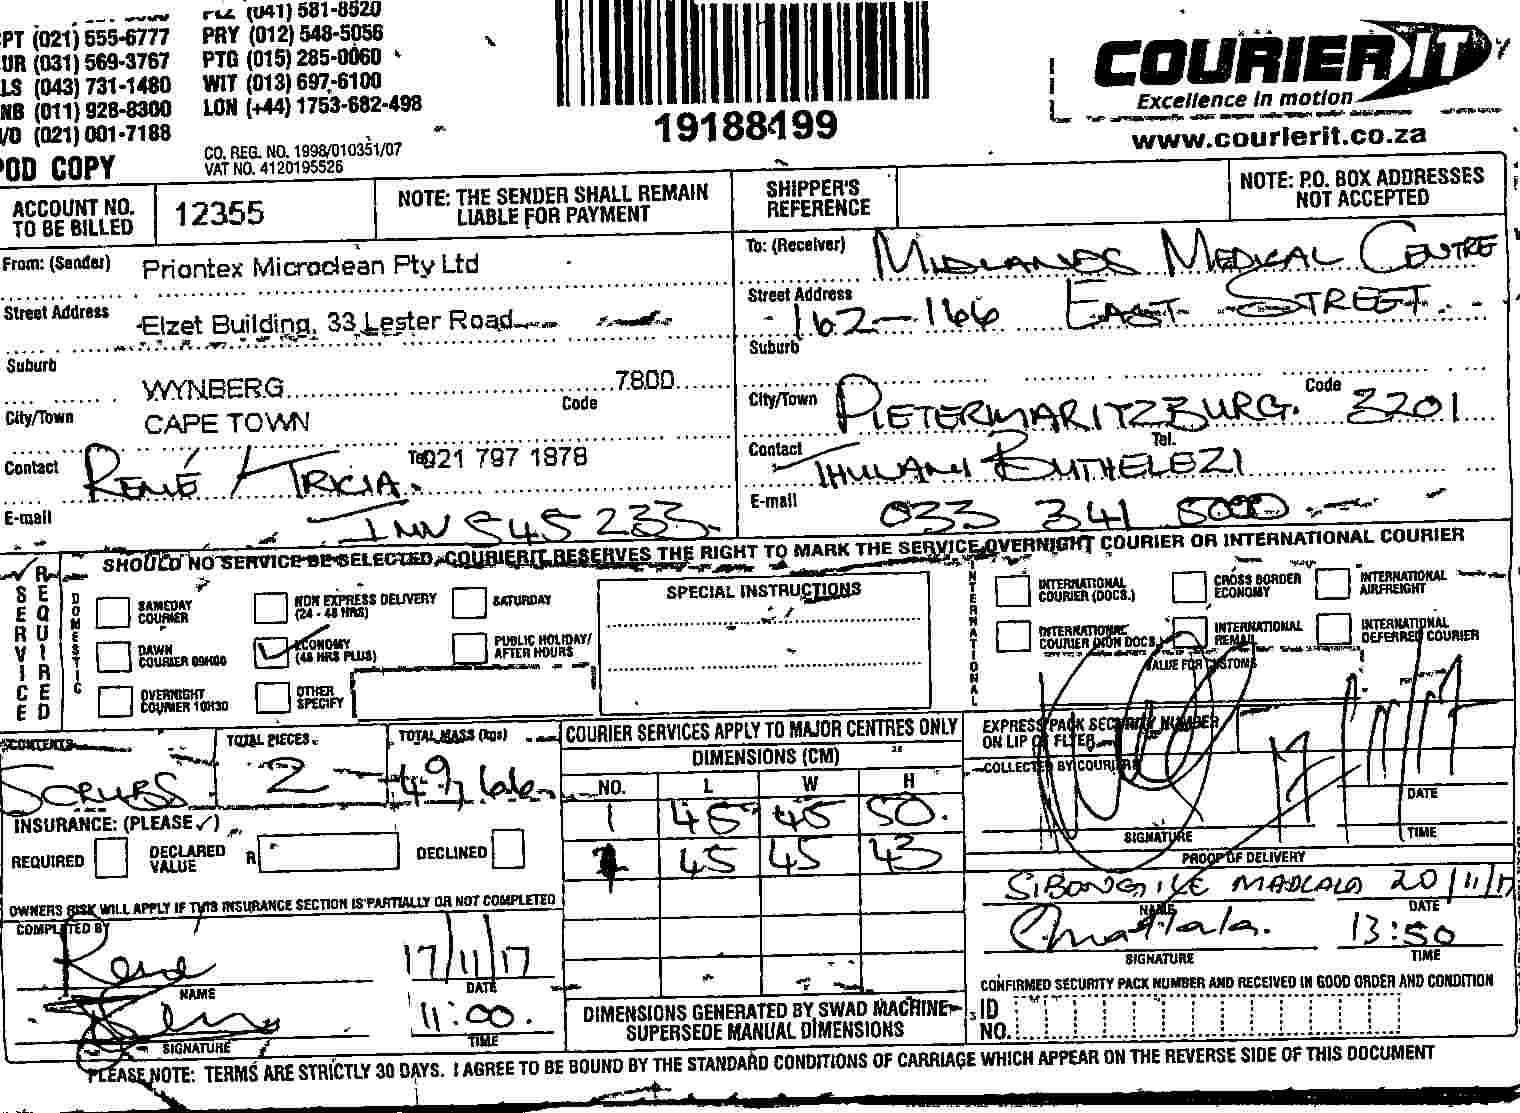 PLZ (041) 581-8520
CPT (021) 555-6777 PRY (012) 548-5056
DUR (031) 569-3767 PTG (015) 285-0060
ELS (043) 731-1480 WIT (013) 697-6100
JNB (011) 928-8300 LON (+44) 1753-682-498
H/O (021) 001-7188
POD COPY
CO. REG. NO. 1998/010351/07
VAT NO. 4120195526
19188499
COURIER IT
Excellence in motion
www.courierit.co.za
ACCOUNT NO. TO BE BILLED 12355
NOTE: THE SENDER SHALL REMAIN LIABLE FOR PAYMENT
SHIPPER'S REFERENCE
NOTE: P.O. BOX ADDRESSES NOT ACCEPTED
From: (Sender) Priontex Microclean Pty Ltd
Street Address Elzet Building, 33 Lester Road
Suburb WYNBERG 7800
City/Town CAPE TOWN Code
Contact RENÉ / TRICIA. Tel 021 797 1878
E-mail INN 545233.
To: (Receiver) MIDLANDS MEDICAL CENTRE
Street Address 162-166 EAST STREET.
Suburb
City/Town PIETERMARITZBURG. Code 3201
Contact THULANI BUTHELEZI Tel.
E-mail 033 341 5000
SHOULD NO SERVICE BE SELECTED, COURIERIT RESERVES THE RIGHT TO MARK THE SERVICE OVERNIGHT COURIER OR INTERNATIONAL COURIER
✓ SERVICE REQUIRED
DOMESTIC
SAMEDAY COURIER
NON EXPRESS DELIVERY (24 - 48 HRS)
SATURDAY
DAWN COURIER 09H00
✓ ECONOMY (48 HRS PLUS)
PUBLIC HOLIDAY/ AFTER HOURS
OVERNIGHT COURIER 10H30
OTHER SPECIFY
SPECIAL INSTRUCTIONS
INTERNATIONAL
INTERNATIONAL COURIER (DOCS.)
CROSS BORDER ECONOMY
INTERNATIONAL AIRFREIGHT
INTERNATIONAL COURIER (NON DOCS.)
INTERNATIONAL REMAIL
INTERNATIONAL DEFERRED COURIER
VALUE FOR CUSTOMS
CONTENTS SCRUBS
TOTAL PIECES 2
TOTAL MASS (kgs) 49,66
INSURANCE: (PLEASE ✓)
REQUIRED
DECLARED VALUE R
DECLINED
OWNERS RISK WILL APPLY IF THIS INSURANCE SECTION IS PARTIALLY OR NOT COMPLETED
COMPLETED BY
Rene 17/11/17
NAME DATE
11:00.
SIGNATURE TIME
COURIER SERVICES APPLY TO MAJOR CENTRES ONLY
DIMENSIONS (CM)
NO. L W H
1 45 45 50.
45 45 43
DIMENSIONS GENERATED BY SWAD MACHINE SUPERSEDE MANUAL DIMENSIONS
EXPRESS PACK SECURITY NUMBER ON LIP OF FLYER
COLLECTED BY COURIER
DATE
SIGNATURE TIME
PROOF OF DELIVERY
SIBONGILE MADLALA 20/11/17
NAME DATE
13:50
SIGNATURE TIME
CONFIRMED SECURITY PACK NUMBER AND RECEIVED IN GOOD ORDER AND CONDITION
ID NO.
PLEASE NOTE: TERMS ARE STRICTLY 30 DAYS. I AGREE TO BE BOUND BY THE STANDARD CONDITIONS OF CARRIAGE WHICH APPEAR ON THE REVERSE SIDE OF THIS DOCUMENT